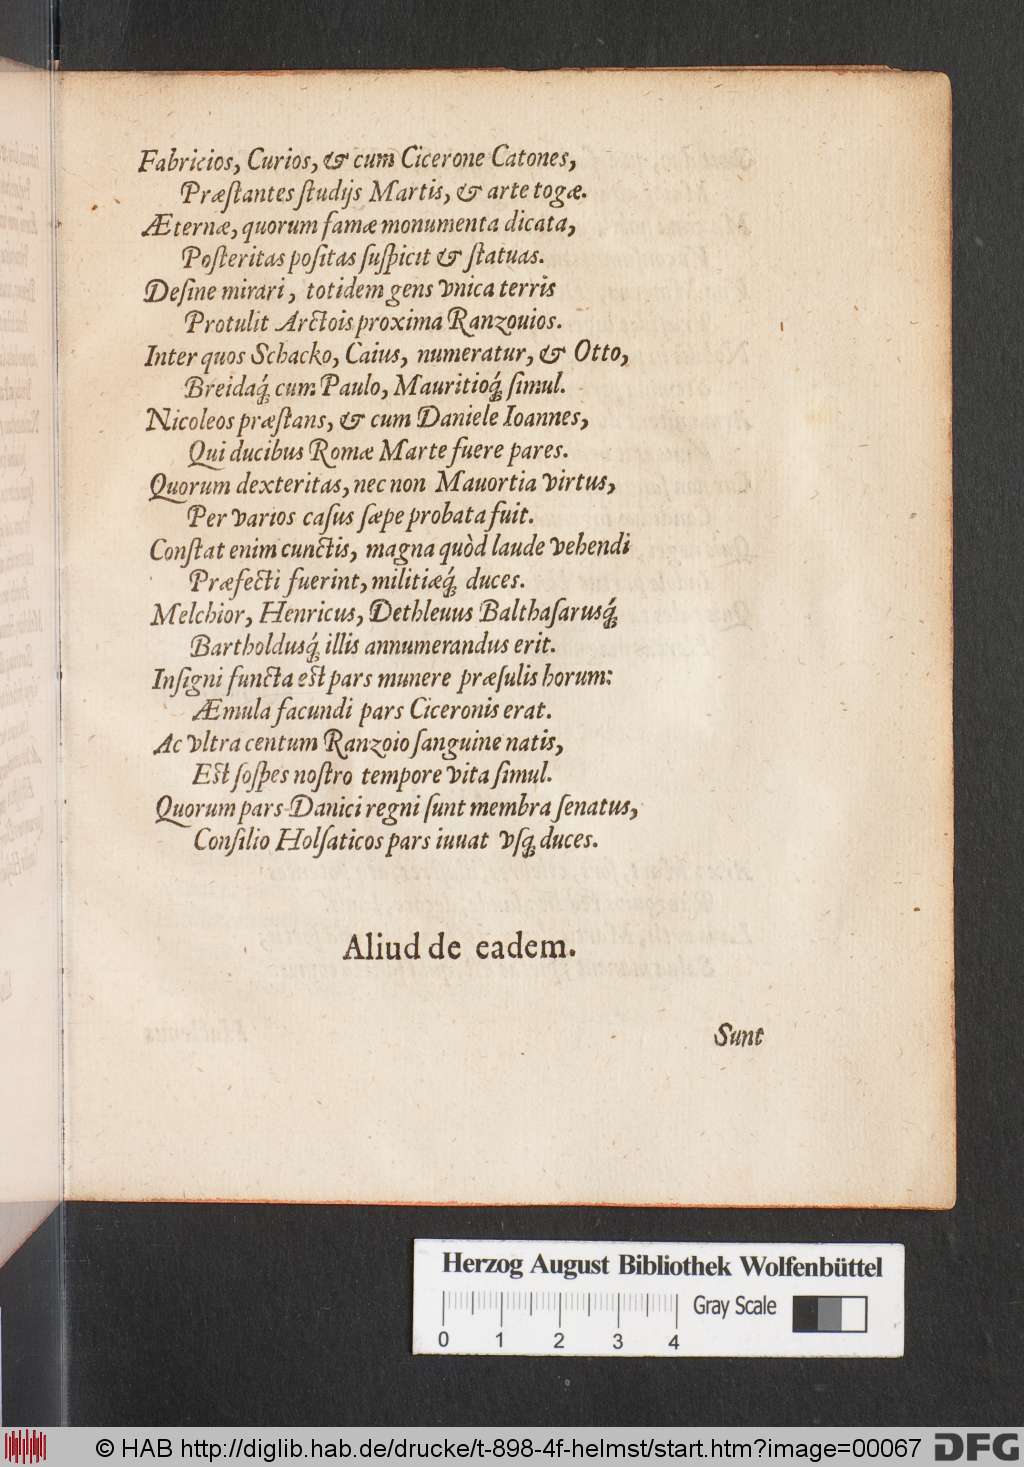 Fabricios, Curios, & cum Cicerone Catones,
Præſtantes ſtudijs Martis, & arte togæ.
Æternæ, quorum famæ monumenta dicata,
Poſteritas poſitas ſuſpicit & ſtatuas.
Deſine mirari, totidem gens vnica terris
Protulit Arctois proxima Ranzouios.
Inter quos Schacko, Caius, numeratur, & Otto,
Breidaq́; cum Paulo, Mauritioq́; ſimul.
Nicoleos præſtans, & cum Daniele Ioannes,
Qui ducibus Romæ Marte fuere pares.
Quorum dexteritas, nec non Mauortia virtus,
Per varios caſus ſæpe probata fuit.
Conſtat enim cunctis, magna quòd laude vehendi
Præfecti fuerint, militiæq́; duces.
Melchior, Henricus, Dethleuus Balthaſarusq́;
Bartholdusq́; illis annumerandus erit.
Inſigni functa eſt pars munere præſulis horum:
Æmula facundi pars Ciceronis erat.
Ac vltra centum Ranzoio ſanguine natis,
Eſt ſoſpes noſtro tempore vita ſimul.
Quorum pars Danici regni ſunt membra ſenatus,
Conſilio Holſaticos pars iuuat vſq; duces.
Aliud de eadem.
Sunt
Herzog August Bibliothek Wolfenbüttel
Gray Scale
0 1 2 3 4
© HAB http://diglib.hab.de/drucke/t-898-4f-helmst/start.htm?image=00067
DFG